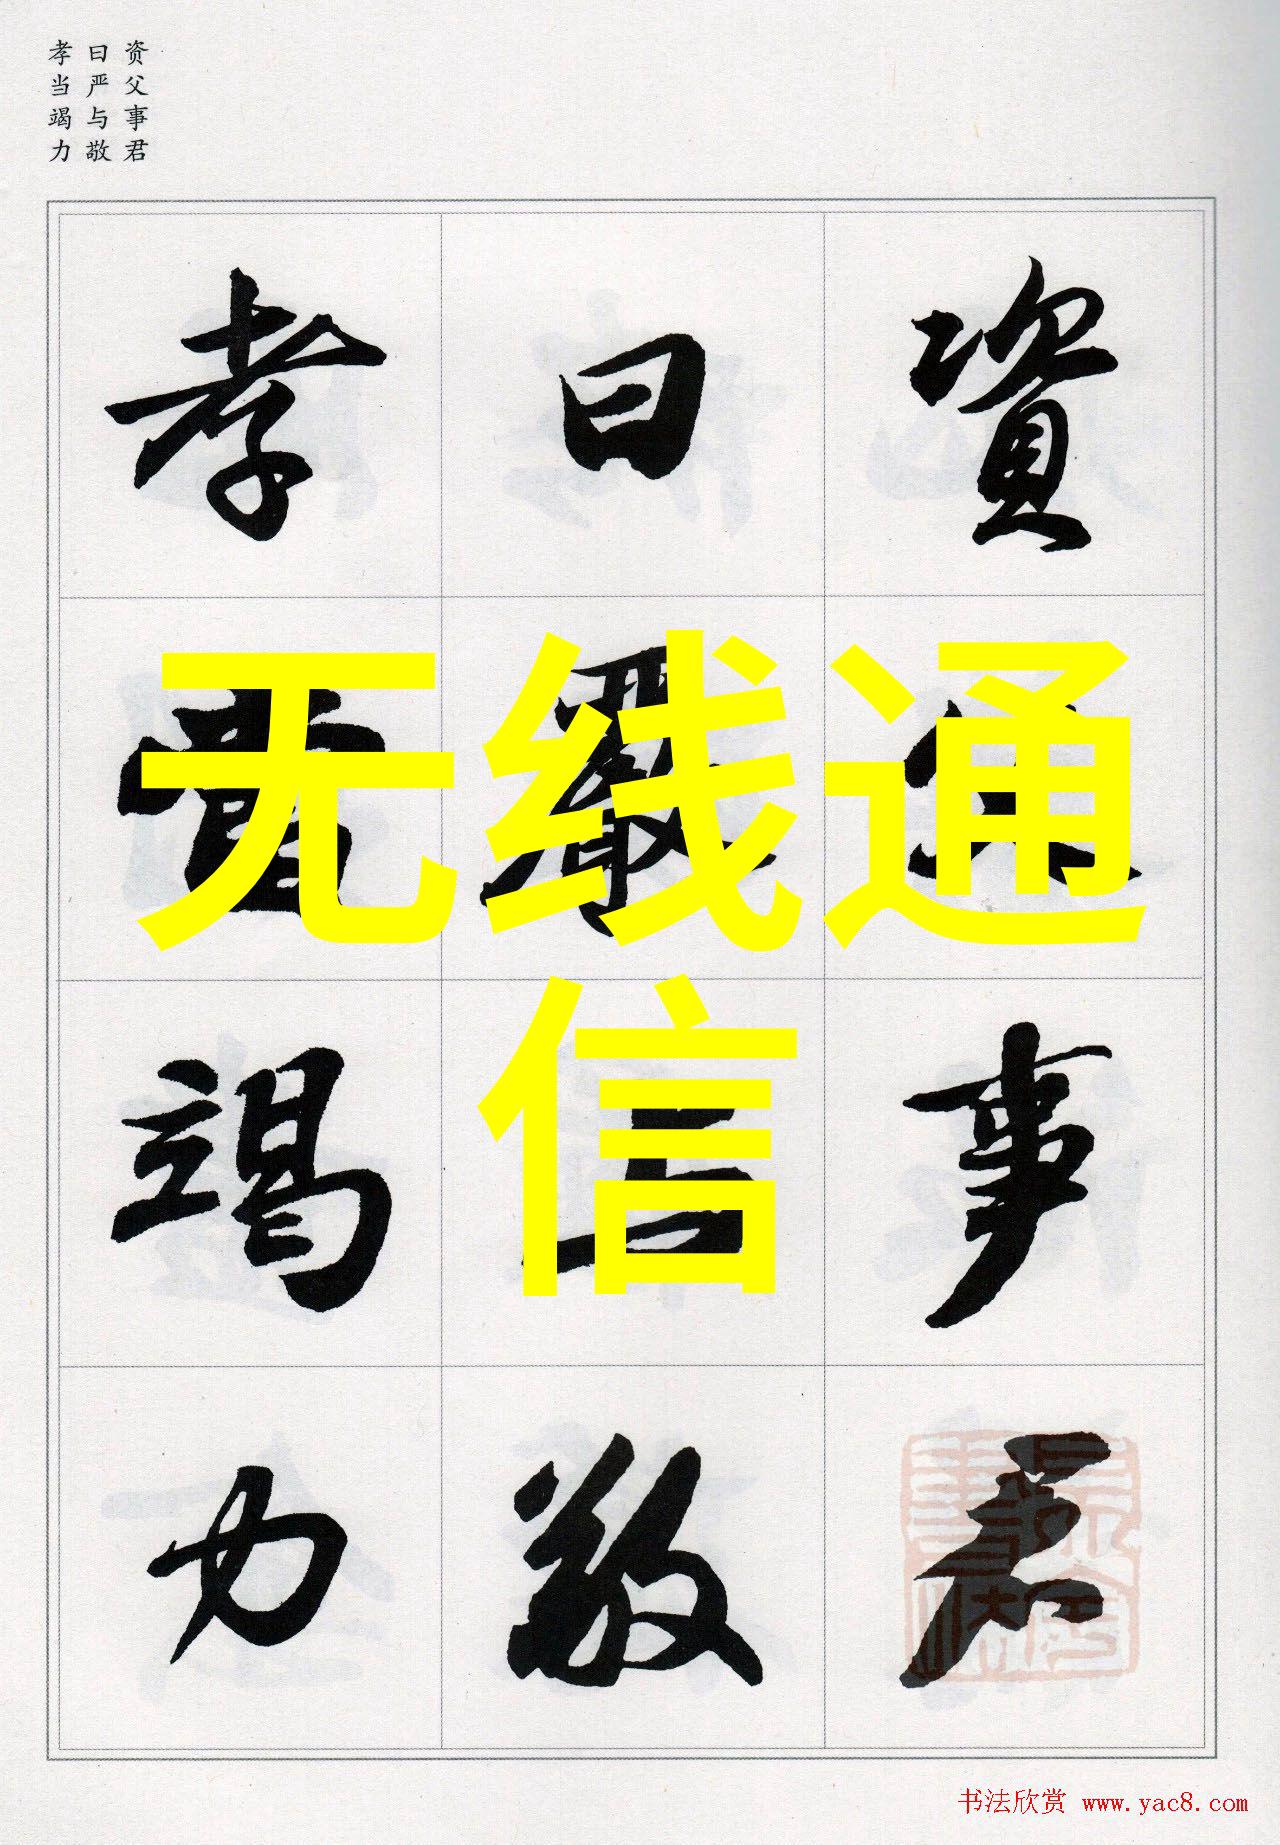 资父事君
曰严与敬
孝当竭力
資父事君
曰嚴与敬
孝當竭力
无线通
信
书法欣赏 www.yac8.com